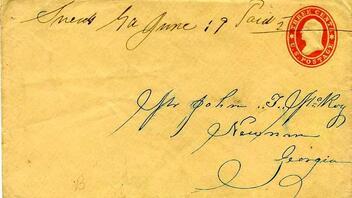 Ga June 19 Paid
THREE CENTS
U.S. POSTAGE
Mr John
Newnan
Georgia